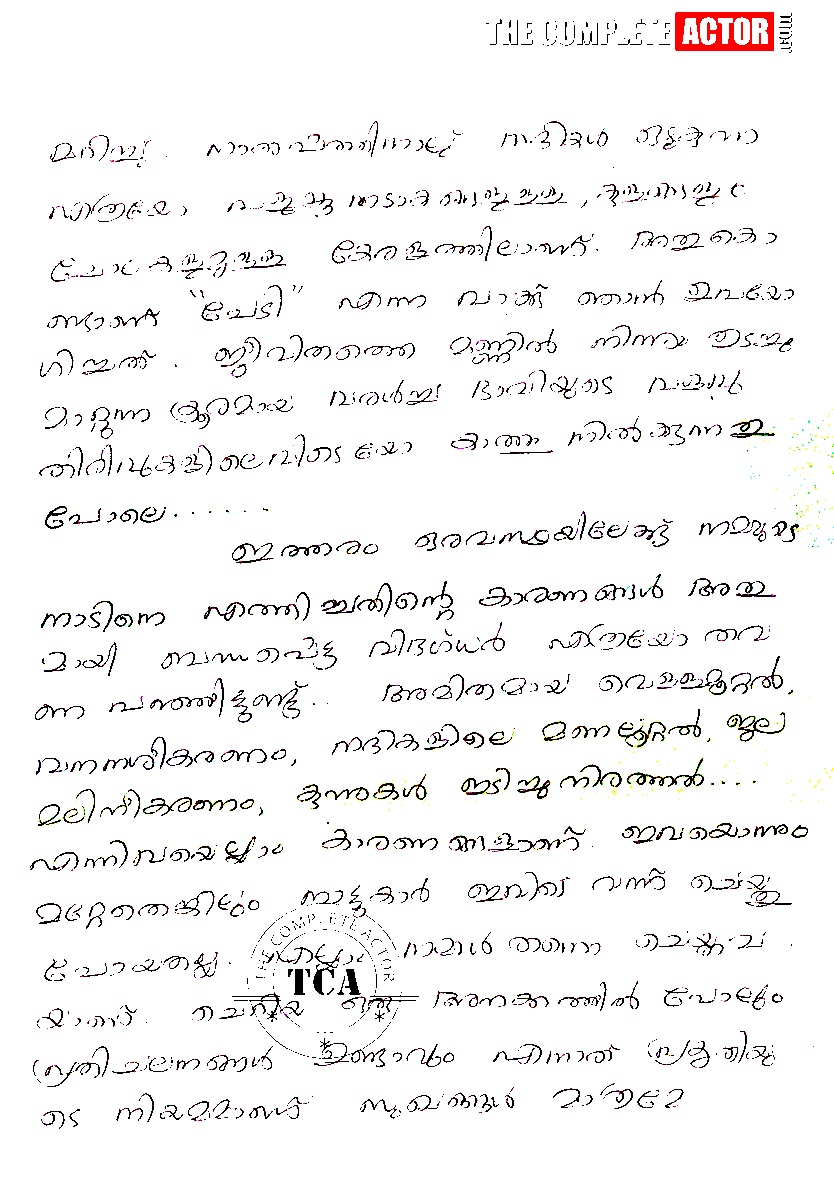 THE COMPLETE ACTOR
മറിച്ച്. നാല്പത്തിനാല് നദികൾ ഒഴുകുന്ന
എത്രയോ തടാകങ്ങളുള്ള, കുളങ്ങളും
ചോലകളുമുള്ള കേരളത്തിലാണ്. അതുകൊ
ണ്ടാണ് "പേടി" എന്ന വാക്ക് ഞാൻ ഉപയോ
ഗിച്ചത്. ജീവിതത്തെ മണ്ണിൽ നിന്നും തുടച്ചു
മാറ്റുന്ന ക്രൂരമായ വരൾച്ച ഭാവിയുടെ വളവു
തിരിവുകളിലെവിടെയോ കാത്തു നിൽക്കുന്നതു
പോലെ......
ഇത്തരം ഒരവസ്ഥയിലേക്ക് നമ്മുടെ
നാടിനെ എത്തിച്ചതിന്റെ കാരണങ്ങൾ അതു
മായി ബന്ധപ്പെട്ട വിദഗ്ധർ എത്രയോ തവ
ണ പറഞ്ഞിട്ടുണ്ട്.. അമിതമായ വെള്ളമൂറ്റൽ,
വനനശീകരണം, നദികളിലെ മണലൂറ്റൽ, ജല
മലിനീകരണം, കുന്നുകൾ ഇടിച്ചു നിരത്തൽ....
എന്നിവയെല്ലാം കാരണങ്ങളാണ്. ഇവയൊന്നും
മറ്റേതെങ്കിലും നാട്ടുകാർ ഇവിടെ വന്ന് ചെയ്തു
പോയതല്ല. എല്ലാം നമ്മൾ തന്നെ ചെയ്തവ
യാണ്. ചെറിയ ഒരു അനക്കത്തിൽ പോലും
പ്രതിചലനങ്ങൾ ഉണ്ടാവും എന്നത് പ്രകൃതിയു
ടെ നിയമമാണ് സുഖങ്ങൾ മാത്രമേ
THE COMPLETE ACTOR
TCA